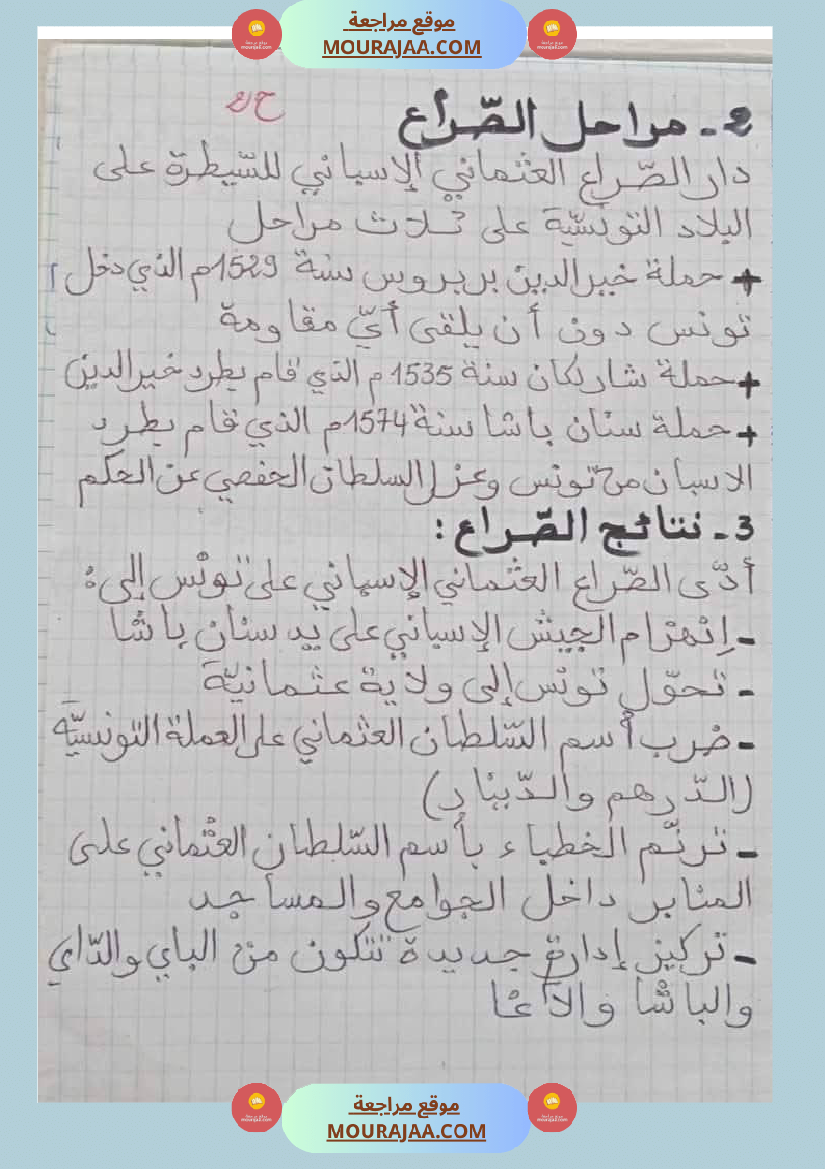 موقع مراجعة
MOURAJAA.COM
2 - مراحل الصّراع
دار الصّراع العثماني الإسباني للسّيطرة على
البلاد التونسيّة على ثلاث مراحل
+ حملة خير الدين بربروس سنة 1529م الذي دخل
تونس دون أن يلقى أيّ مقاومة
+ حملة شارلكان سنة 1535م الذي قام بطرد خير الدين
+ حملة سنان باشا سنة 1574م الذي قام بطرد
الاسبان من تونس وعزل السلطان الحفصي عن الحكم
3 - نتائج الصّراع :
أدّى الصّراع العثماني الإسباني على تونس إلى:
- إنهزام الجيش الإسباني على يد سنان باشا
- تحوّل تونس إلى ولاية عثمانيّة
- ضرب أسم السّلطان العثماني على العملة التونسيّة
(الدّرهم والدّينار)
- ترنّم الخطباء بأسم السّلطان العثماني على
المنابر داخل الجوامع والمساجد
- تركيز إدارة جديدة تتكون من الباي والدّاي
والباشا والآغا
موقع مراجعة
MOURAJAA.COM